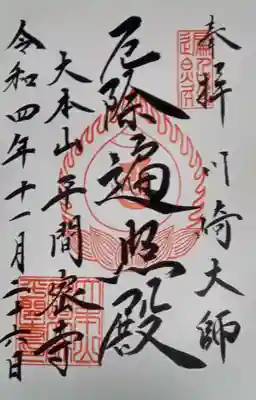 奉拝 川崎大師
厄除遍照殿
大本山平間寺
令和四年十一月二十六日